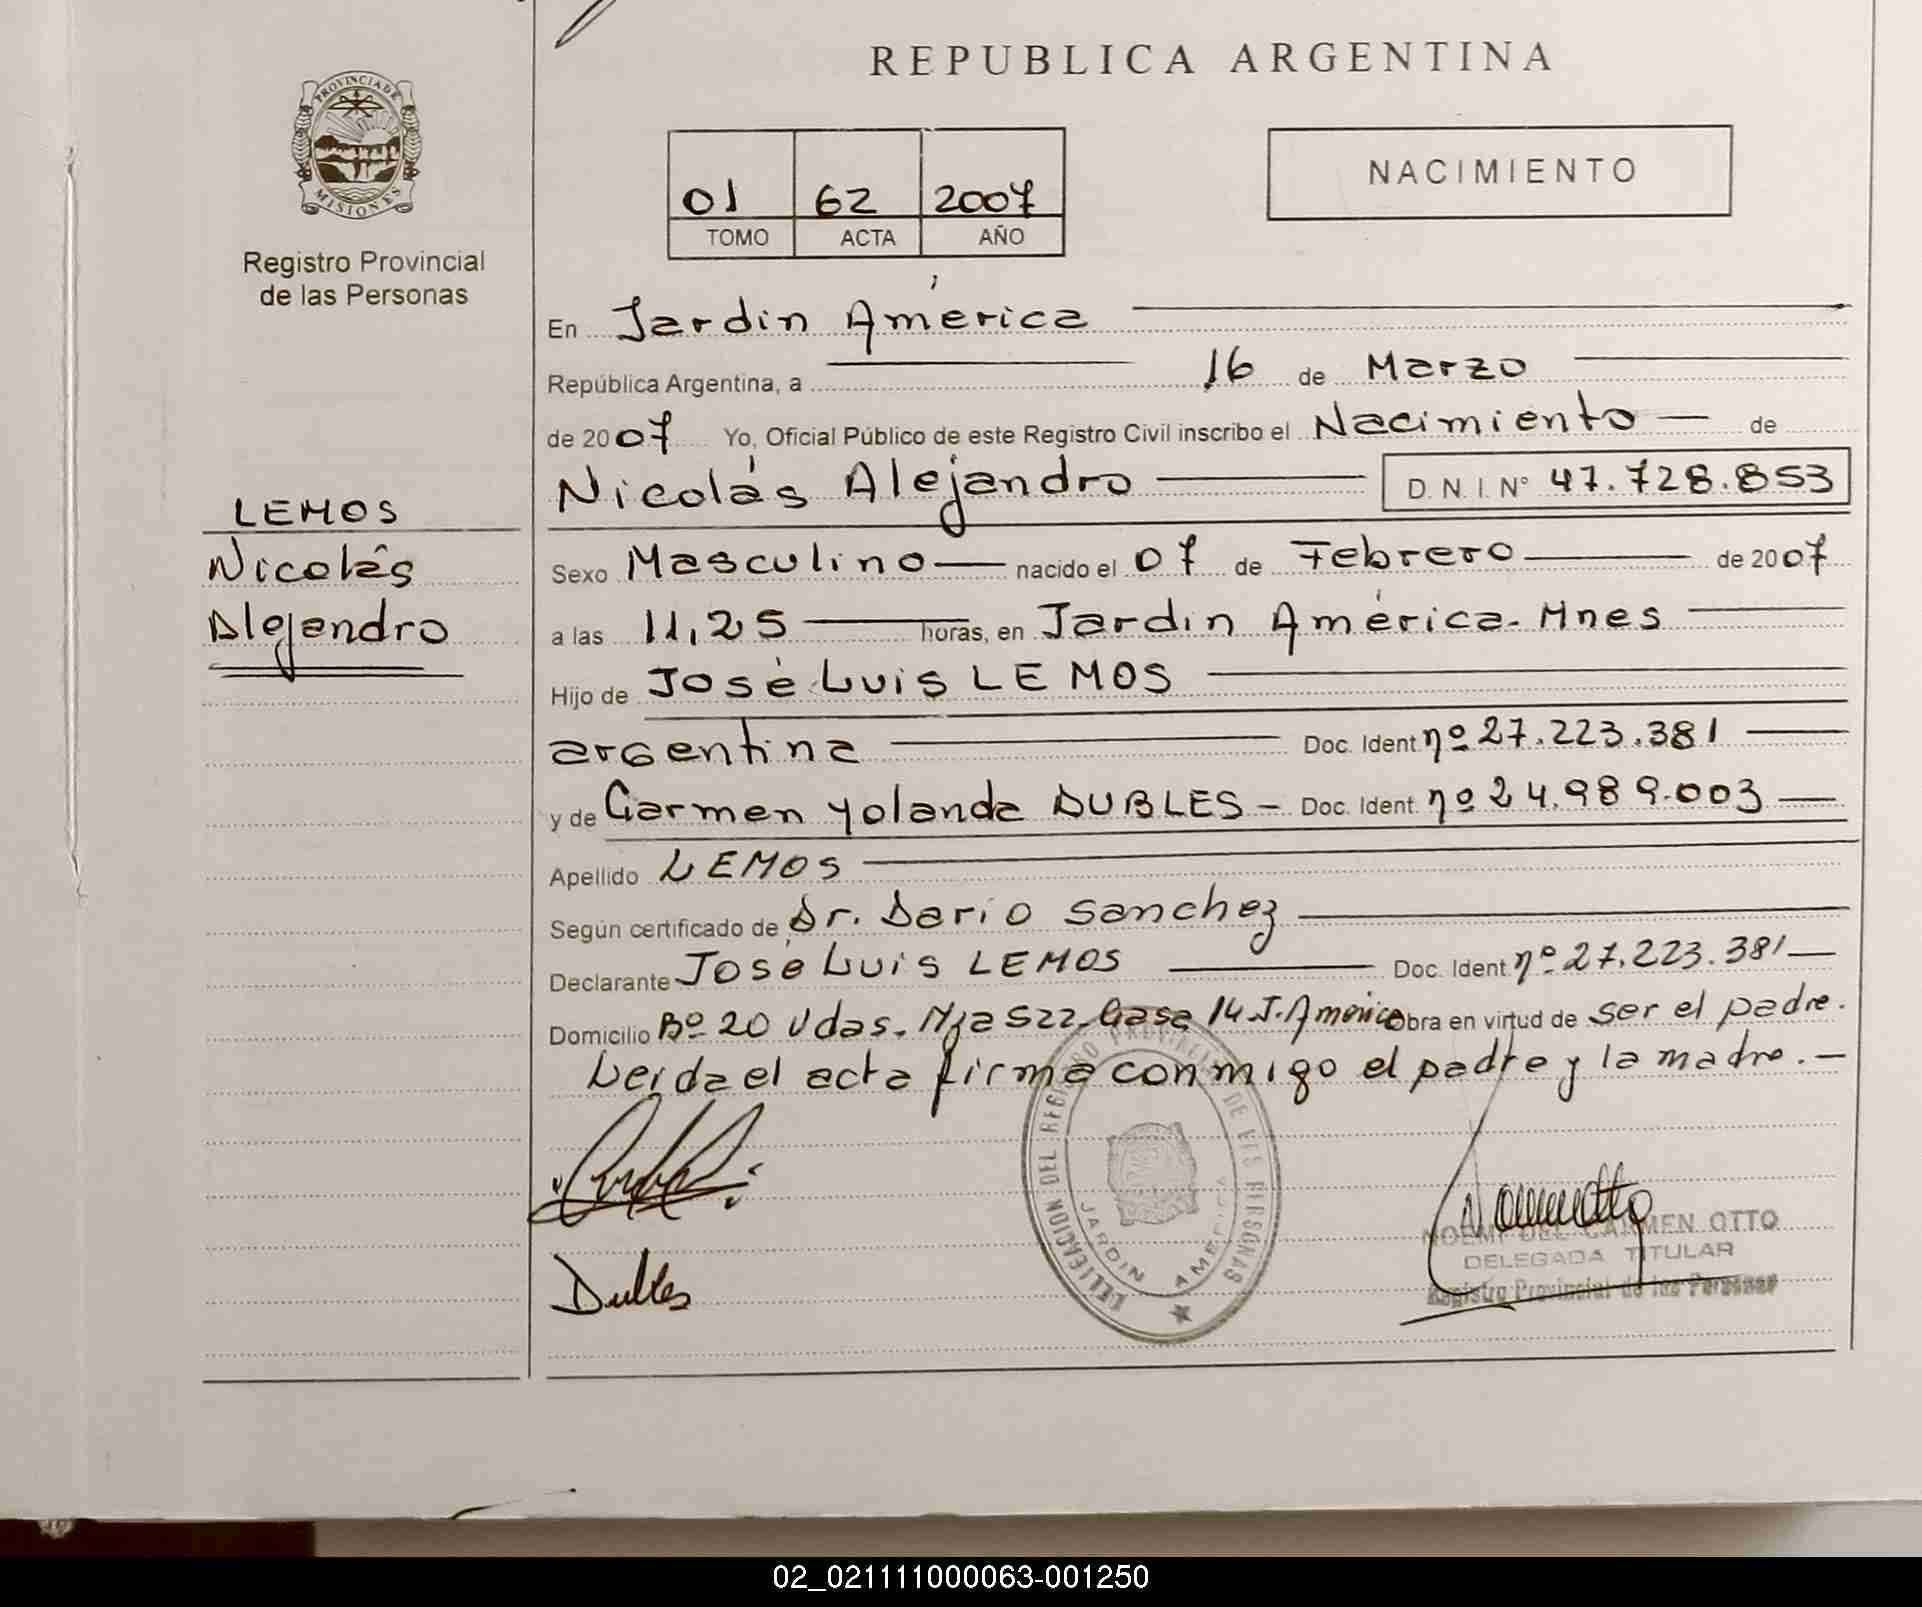 REPUBLICA ARGENTINA
PROVINCIA DE
MISIONES
Registro Provincial
de las Personas
01 62 2007
TOMO ACTA AÑO
NACIMIENTO
En Jardín América
República Argentina, a 16 de Marzo
de 2007 Yo, Oficial Público de este Registro Civil inscribo el Nacimiento — de
Nicolás Alejandro D. N. I. N° 47.728.853
LEMOS
Nicolás
Alejandro
Sexo Masculino — nacido el 07 de Febrero de 2007
a las 11,25 horas, en Jardín América. Mnes
Hijo de José Luis LEMOS
argentina Doc. Ident. nº 27.223.381
y de Carmen Yolanda DUBLES - Doc. Ident. nº 24.989.003
Apellido LEMOS
Según certificado de Dr. Dario Sanchez
Declarante José Luis LEMOS Doc. Ident. nº 27.223.381
Domicilio Bº 20 Vdas. Casa 14 J. América obra en virtud de ser el padre.
Leida el acta firma conmigo el padre y la madre. —
JARDIN AMERICA
Dubles
NOEMI DEL CARMEN OTTO
DELEGADA TITULAR
Registro Provincial de las Personas
02_021111000063-001250